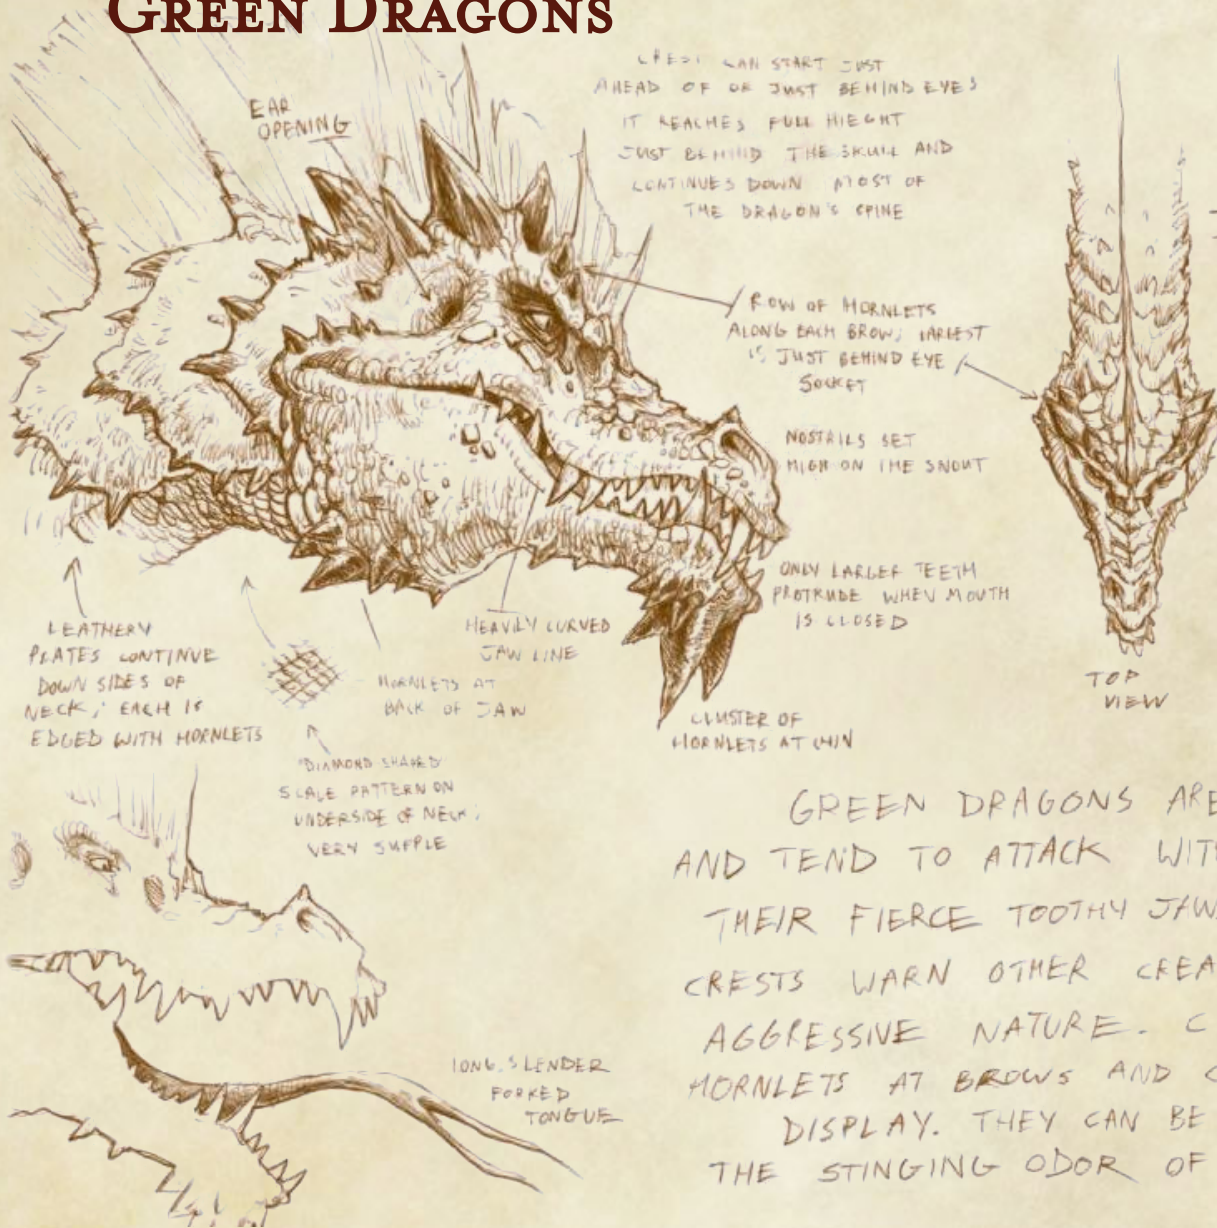 GREEN DRAGONS
CREST CAN START JUST
AHEAD OF OR JUST BEHIND EYES
IT REACHES FULL HIEGHT
JUST BEHIND THE SKULL AND
CONTINUES DOWN MOST OF
THE DRAGON'S SPINE
EAR
OPENING
ROW OF HORNLETS
ALONG EACH BROW; LARGEST
IS JUST BEHIND EYE
SOCKET
NOSTRILS SET
HIGH ON THE SNOUT
ONLY LARGER TEETH
PROTRUDE WHEN MOUTH
IS CLOSED
LEATHERY
PLATES CONTINUE
DOWN SIDES OF
NECK; EACH IS
EDGED WITH HORNLETS
HEAVILY CURVED
JAW LINE
HORNLETS AT
BACK OF JAW
CLUSTER OF
HORNLETS AT CHIN
TOP
VIEW
DIAMOND SHAPED
SCALE PATTERN ON
UNDERSIDE OF NECK;
VERY SUPPLE
GREEN DRAGONS ARE
AND TEND TO ATTACK WIT
THEIR FIERCE TOOTHY JAW
CRESTS WARN OTHER CREA
AGGRESSIVE NATURE. C
HORNLETS AT BROWS AND C
DISPLAY. THEY CAN BE
THE STINGING ODOR OF
LONG, SLENDER
FORKED
TONGUE